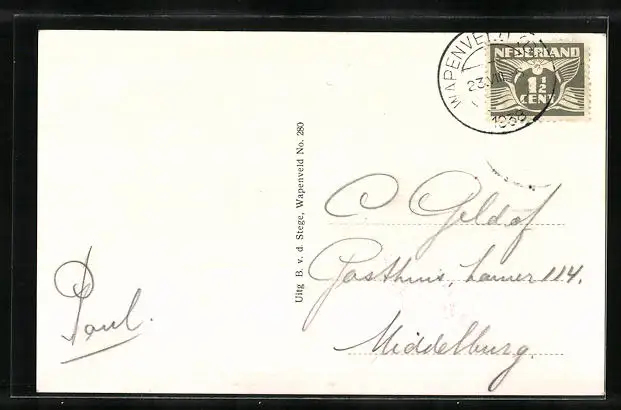 WAPENVELD
23.VIII
1938
NEDERLAND
1½
CENT
Uitg B. v. d. Stege, Wapenveld No. 280
C. Geldof
Gasthuis, kamer 114.
Middelburg.
Paul.